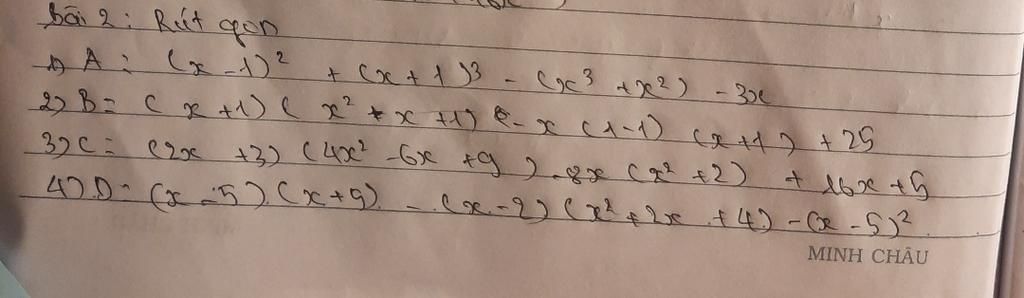 bài 2: Rút gọn
1) A = (x - 1)² + (x + 1)³ - (x³ + x²) - 3x
2) B = (x + 1) (x² + x + 1) - x (1 - 1) (x + 1) + 25
3) C = (2x + 3) (4x² - 6x + 9) - 8x (x² + 2) + 16x + 5
4) D = (x - 5) (x + 5) - (x - 2) (x² + 2x + 4) - (x - 5)²
MINH CHÂU